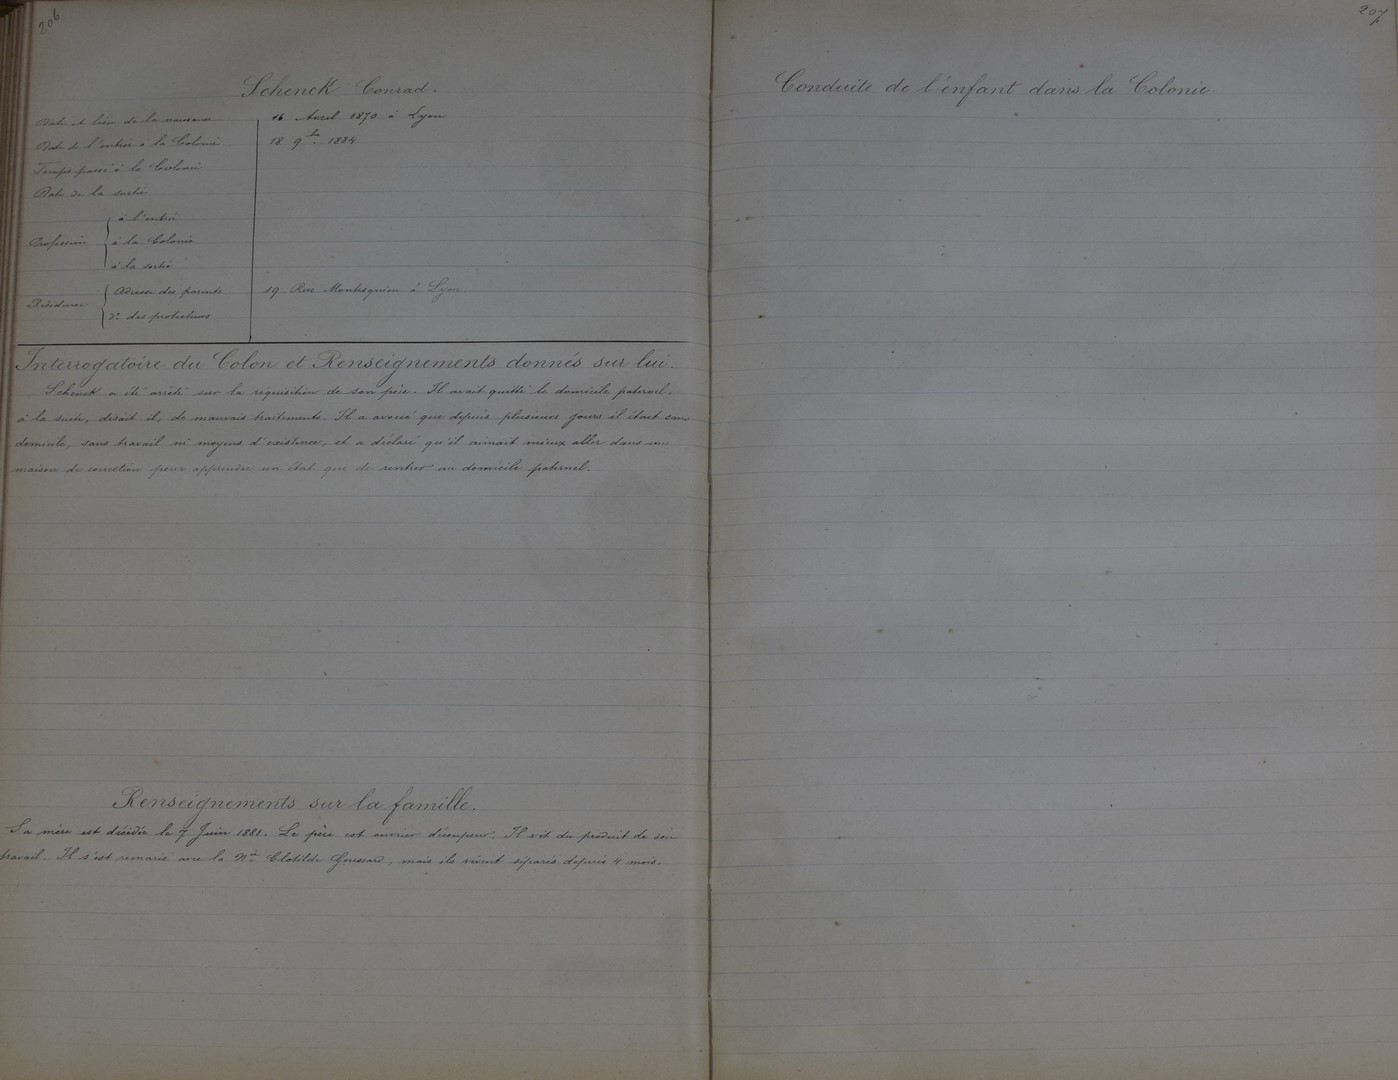 206
Schenck Conrad.
Date et lieu de la naissance 16 Avril 1870 à Lyon
Date de l'entrée à la Colonie 18 9bre 1884
Temps passé à la Colonie
Date de la sortie
Profession
à l'entrée
à la Colonie
à la sortie
Résidence
Adresse des parents 19 Rue Montesquieu à Lyon.
do des protecteurs
Interrogatoire du Colon et Renseignements donnés sur lui.
Schenck a été arrêté sur la réquisition de son père. Il avait quitté le domicile paternel,
à la suite, disait il, de mauvais traitements. Il a avoué que depuis plusieurs jours il était sans
domicile, sans travail ni moyens d'existence, et a déclaré qu'il aimait mieux aller dans une
maison de correction pour apprendre un état que de rentrer au domicile paternel.
Renseignements sur la famille.
Sa mère est décédée le 7 Juin 1881. Le père est ouvrier découpeur. Il vit du produit de son
travail. Il s'est remarié avec la Clotilde mais ils vivent séparés depuis 4 mois.
207
Conduite de l'enfant dans la Colonie